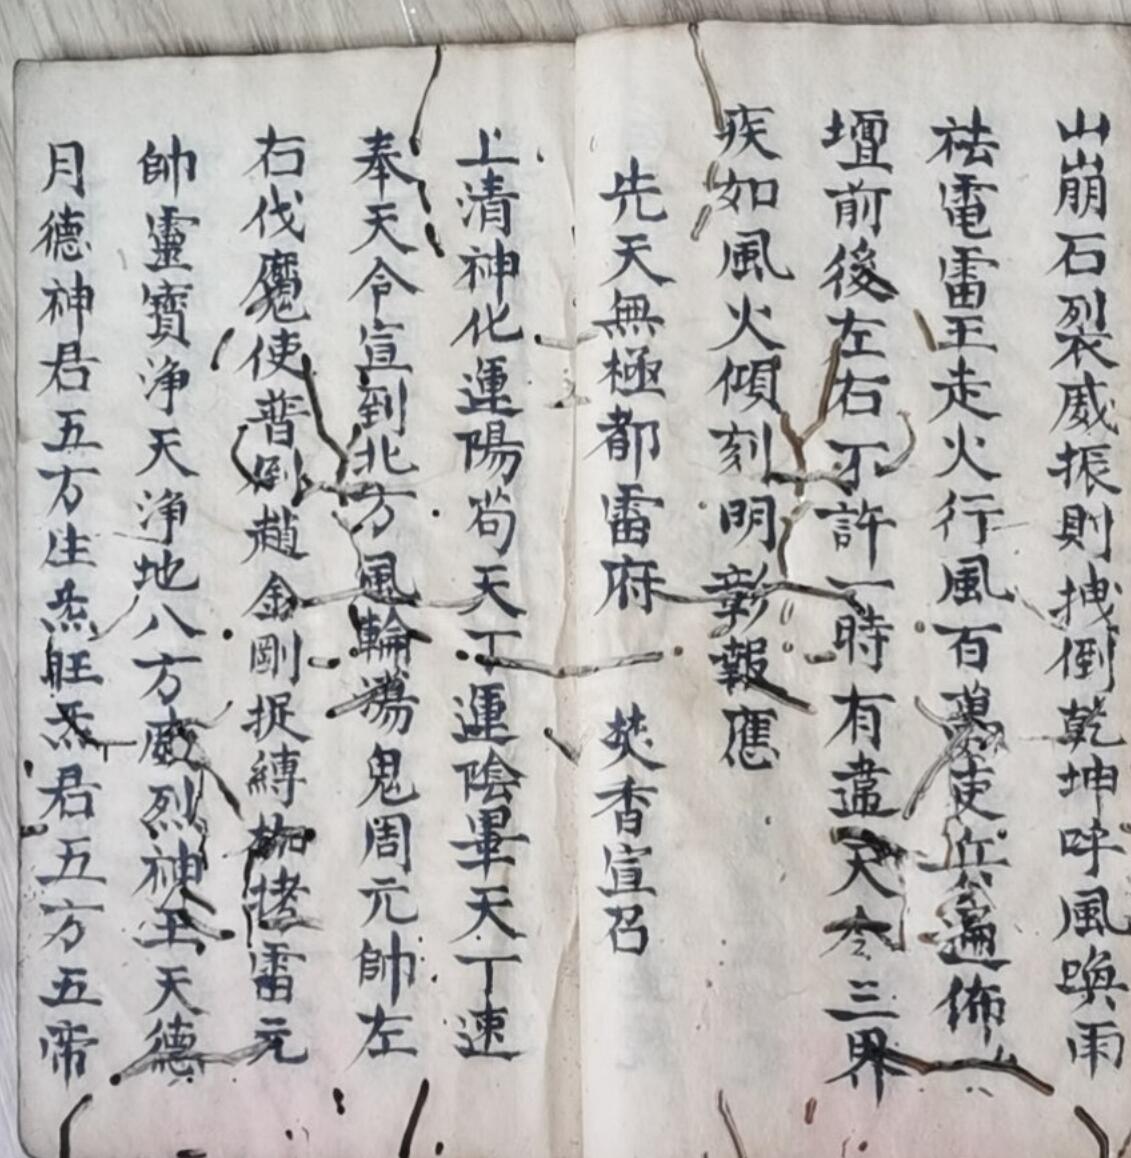 山崩石裂威振則拽倒乾坤呼風喚雨
祛電雷王走火行風百萬吏兵遍佈
壇前後左右不許一時有違天令三界
疾如風火傾刻明彰報應
先天無極都雷府 焚香宣召
上清神化運陽筍天丁運陰畢天丁速
奉天令宣到北方風輪蕩鬼周元帥左
右伐魔使普倒趙金剛捉縛枷拷雷元
帥靈寶淨天淨地八方威烈神王天德
月德神君五方生炁旺炁君五方五帝